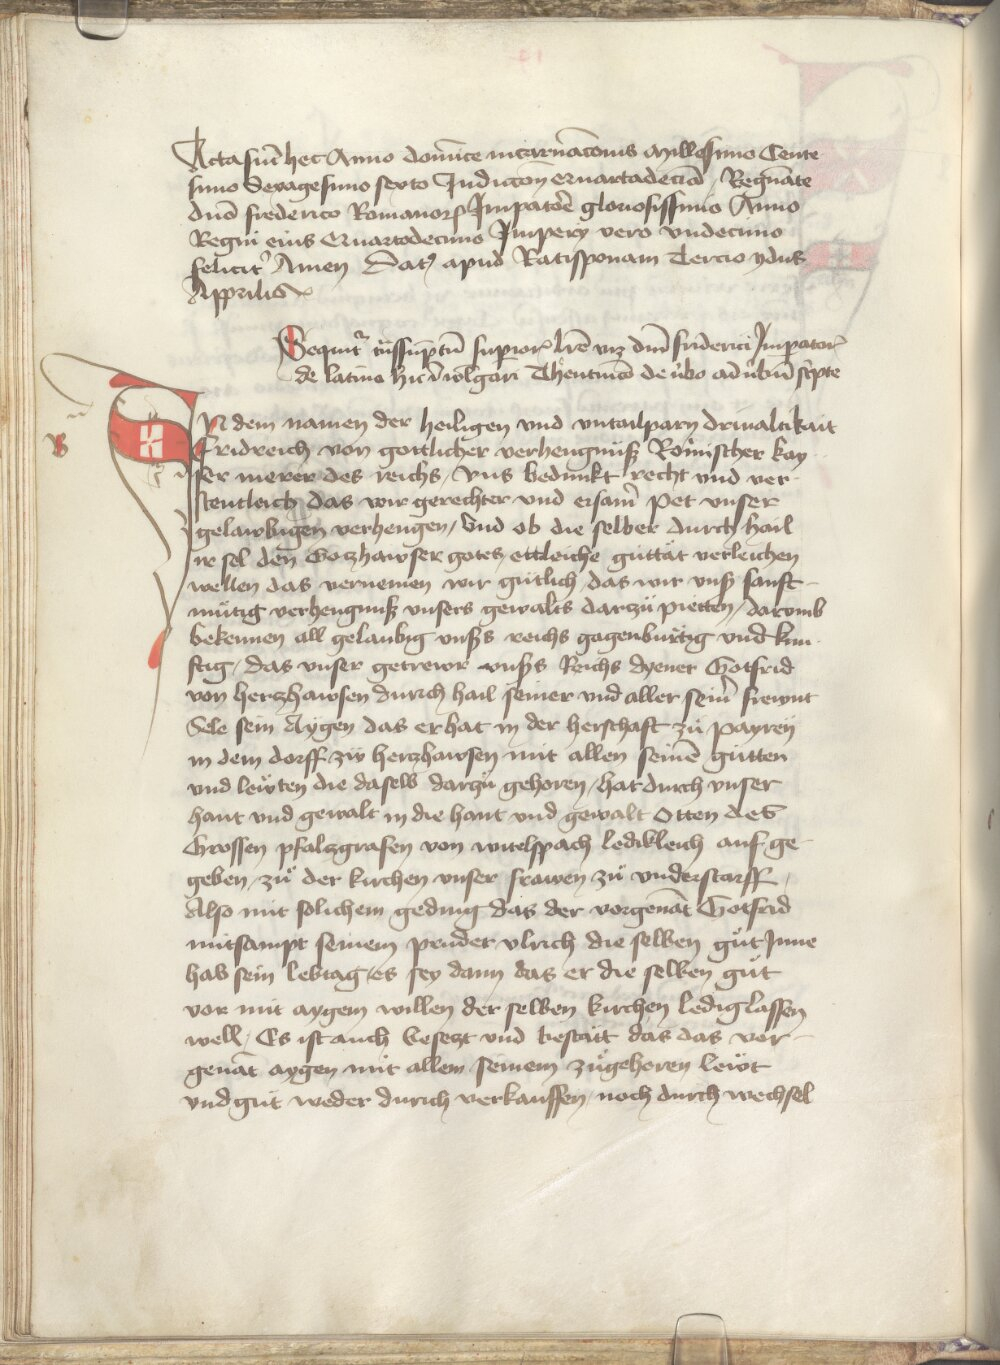 Acta su͞t hec Anno domi͞ce incarnac͞onis Millesimo Cente
simo Sexagesimo sexto Indicc͞on Quartadeci͞a Regna͞te
dn͞o Frederico Romanor͞ Impato͞re gloriosissimo Anno
Regni eius Quartodecimo Impery vero vndecimo
felicit͛ Amen Dat͛ apud Ratisponam Tercio ydus
Apprilis
Sequit͛ t͛nssu͞ptu͞ superior͛ lr͞e viz dn͞i friderici Impator͛
de latino hic i͞ wlgari Theutu͞co de v͛bo ad v͛bu͞ sc͛pte
IN dem namen der heiligen vnd vntailparn driualtikait
Fridreich von gottlicher verhengnuß Romischer kay
ser merer des reichs, vns bedunkt recht vnd ver-
stentleich das wir gerechter vnd ersam͛ pet vnser
gelawbigen verhengen, Vnd ob die selber durch hail
ir sel den Gotzhawser gotes, ettleiche guttat verleichen
wellen das vernemen wir gütlich das wir vnß sanft-
mütig verhengnuß vnsers gewalts darzü pietten, daromb
bekennen all gelaubig vnß͛s reichs gagenbürtig vnd kun-
ftig, das vnser getrewr vnß͛s Reichs dyener Gotfrid
von hertzhawsen durich hail seiner vnd aller sein͛ frewnt
Sele sein Aygen das er hat in der herschaft zü payrn
in dem dorff zw hertzhawsen mit allen seine͞ gütten
vnd lewten die daselb darzü gehoren, hat durch vnser
hant vnd gewalt in die hant vnd gewalt Otten des
Grossen pfalzgrafen von witelspach lediklich auf ge-
geben, zü der kirchen vnser frawen zü vnderstarff,
Also mit solichem geding das der vorgena͞t Gotfrid
mitsampt seinem pruder vlrich die selben güt Inne
hab sein lebtag, es sey dann das er die selben güt
vor mit aygem willen der selben kirchen ledig lassen
well, Es ist auch beseczt vnd bestätt das das vor-
gena͞t aygen mit allem seinem zügehoren lewt
vnd güt weder durich verkauffen, noch durch wechsel